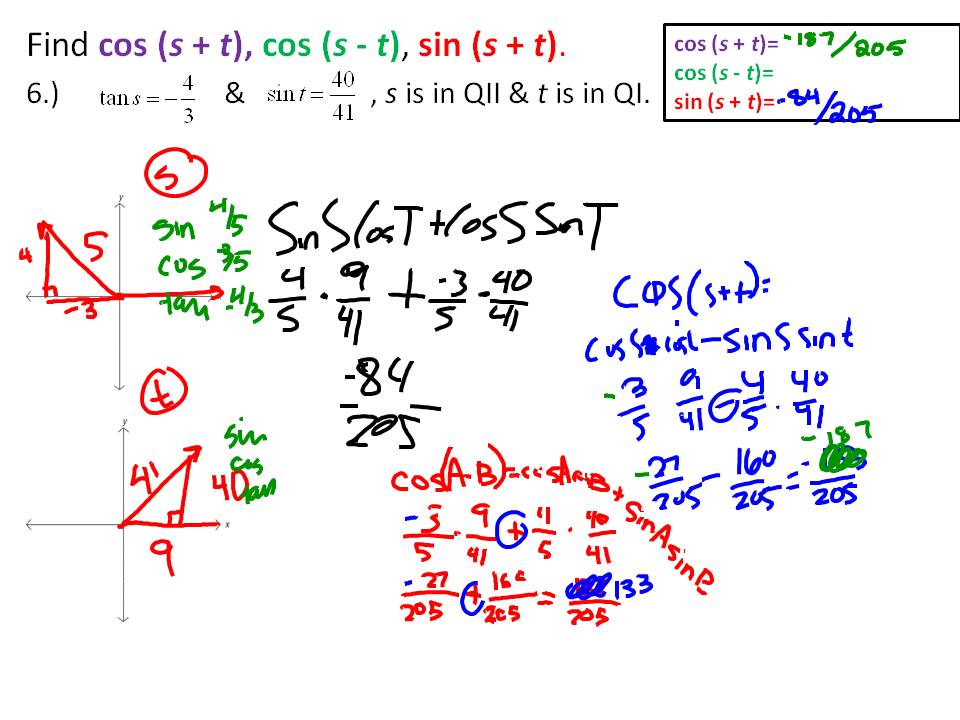 Find cos (s + t), cos (s - t), sin (s + t).
6.) tan s = -4/3 & sin t = 40/41 , s is in QII & t is in QI.
cos (s + t)= -187/205
cos (s - t)=
sin (s + t)= -84/205
s
y
4
5
-3
sin 4/5
cos -3/5
tan -4/3
Sin S Cos T + Cos S Sin T
4/5 · 9/41 + -3/5 · 40/41
-84/205
cos(s+t)=
cos S cos t - sin S sin t
-3/5 9/41 - 4/5 · 40/41
-27/205 - 160/205 = -187/205
t
y
x
41
40
9
sin
cos
tan
cos(A-B)=cosAcosB + sinA sinB
-3/5 · 9/41 + 4/5 · 40/41
-27/205 + 160/205 = 133/205